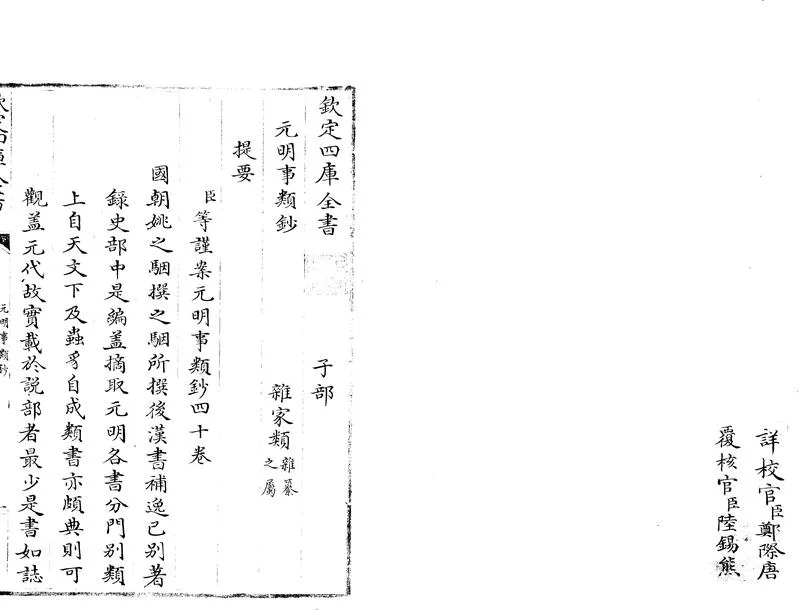 詳校官臣鄭際唐
覆核官臣陸錫熊
欽定四庫全書 子部
元明事類鈔 雜家類雜纂之屬
提要
臣等謹案元明事類鈔四十卷
國朝姚之駰撰之駰所撰後漢書補逸已别著
録史部中是編盖摘取元明各書分門别類
上自天文下及蟲豸自成類書亦頗典則可
觀盖元代故實載於說部者最少是書如誌
元明事類鈔